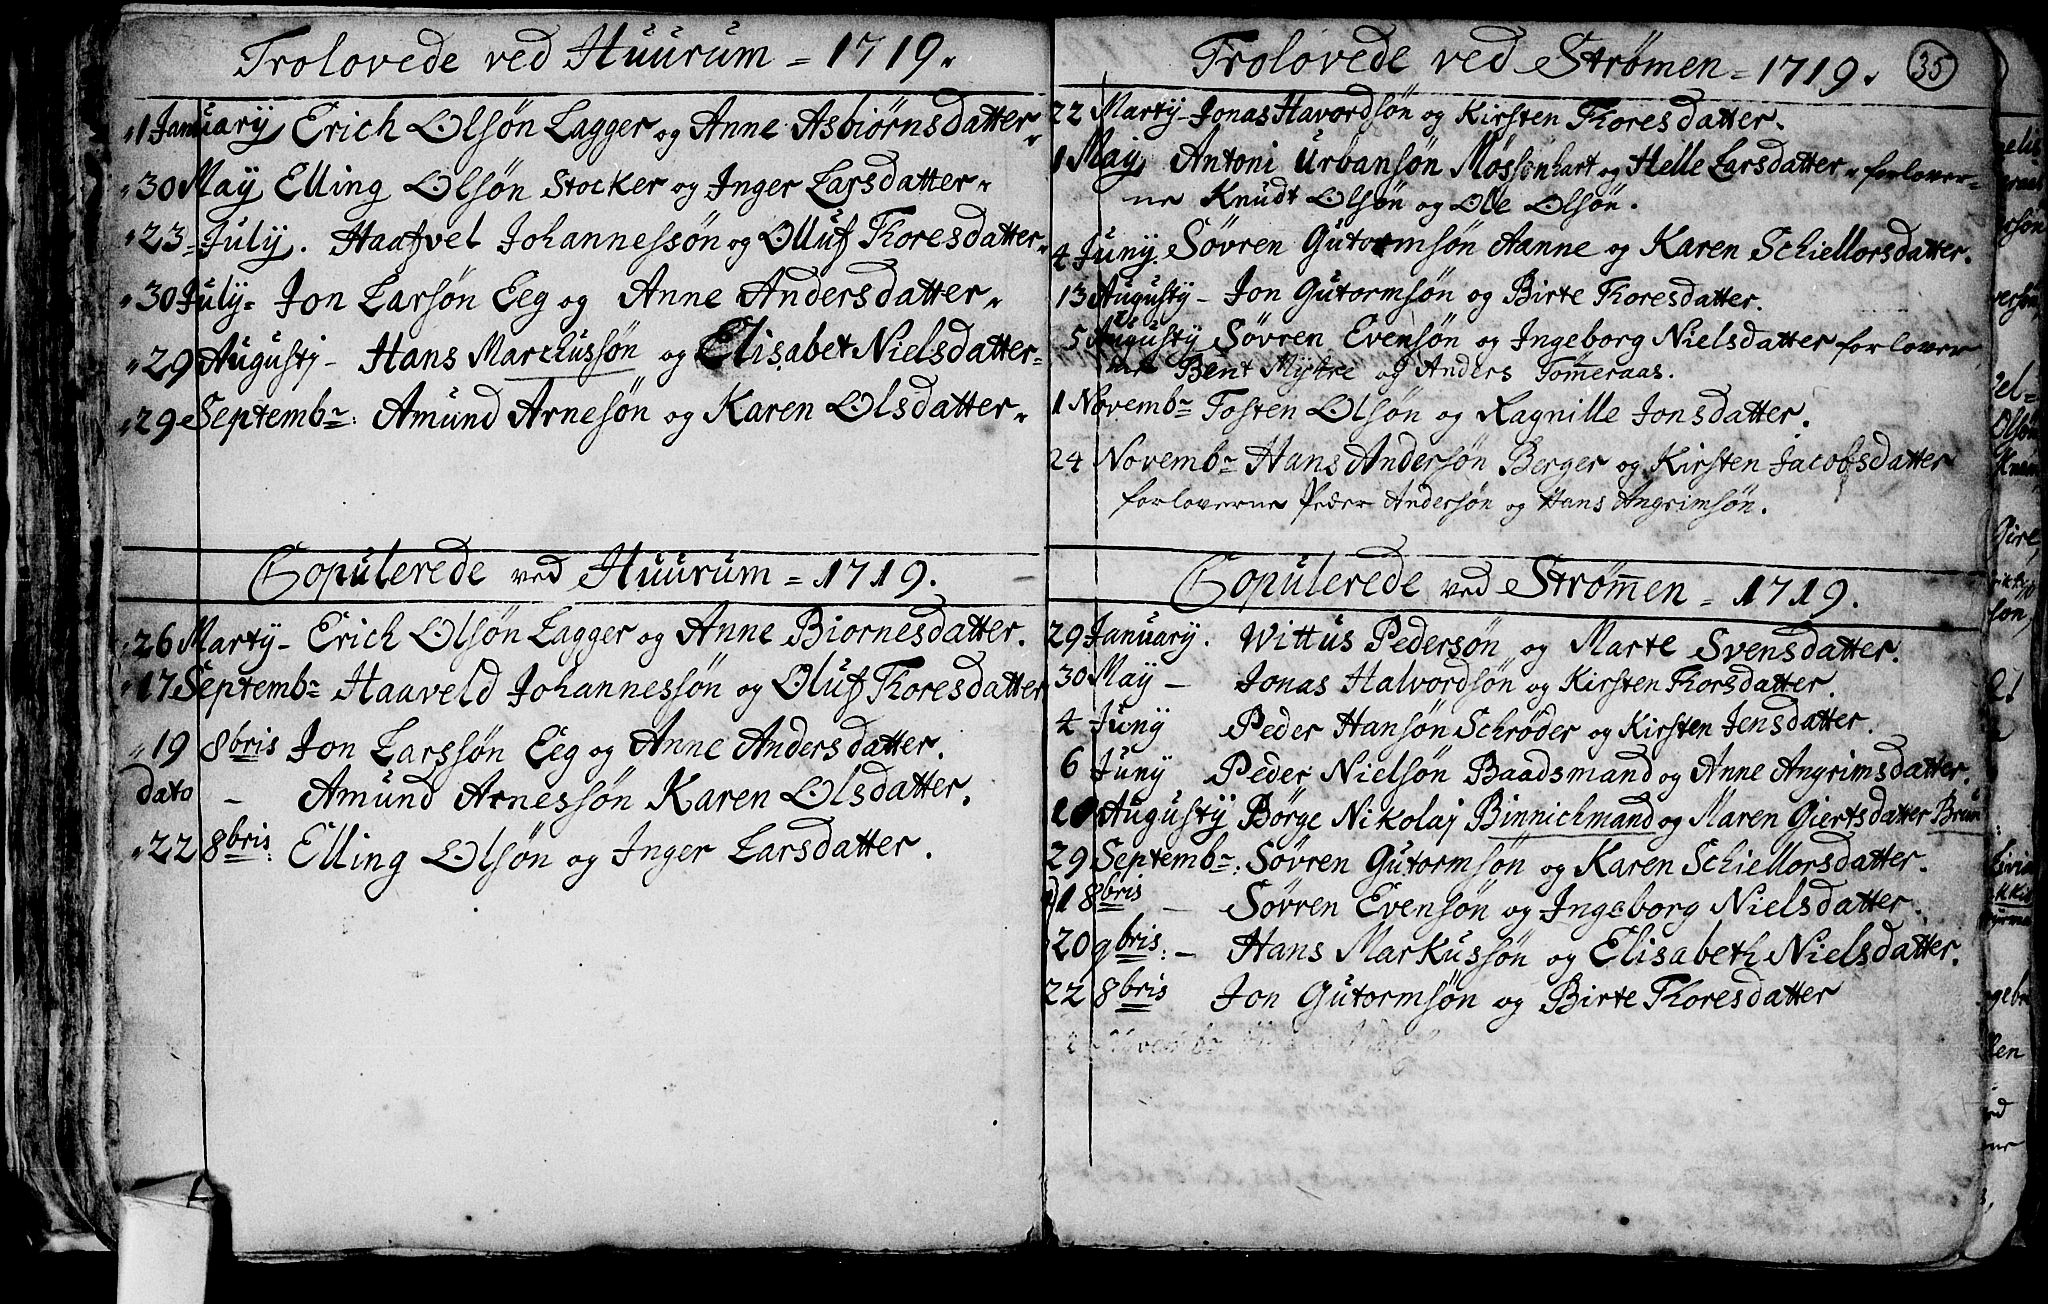 Trolovede ved Huurum = 1719.
1 January Erich Olsøn Lagger og Anne Asbiørnsdatter
30 May Elling Olsøn Stocker og Inger Larsdatter
23 July. Haafvel Johannessøn og Olluf Thoresdatter
30 July = Jon Larsøn Eeg og Anne Andersdatter
29 Augustj - Hans Marchussøn og Elisabet Nielsdatter
29 Septembr: Amund Arnesøn og Karen Olsdatter
Copulerede ved Huurum = 1719.
26 Marty - Erich Olsøn Lagger og Anne Biornesdatter.
17 Septembr Haaveld Johannessøn og Oluf Thoresdatter
19 8bris Jon Larssøn Eeg og Anne Andersdatter.
dato - Amund Arnessøn Karen Olsdatter.
22 8bris: Elling Olsøn og Inger Larsdatter.
Trolovede ved Strømen = 1719. 35
22 Marty - Jonas Havordsøn og Kirsten Thoresdatter.
1 May Antoni Urbansøn Møssenhart og Helle Larsdatter forlover=
ne Knudt Olsøn og Ole Olsøn.
4 Juny. Søvren Gutormsøn Aanne og Karen Schiellorsdatter.
13 Augusty - Jon Gutormsøn og Birte Thoresdatter.
5 Augusty Søvren Evensøn og Ingeborg Nielsdatter forlover
ne Bent Myhre og Anders Tømeraas.
1 Novembr Tosten Olsøn og Ragnille Jonsdatter.
24 Novembr Hans Andersøn Berger og Kirsten Jacobsdatter
forloverne Peder Andersøn og Hans Angrimsøn.
Copulerede ved Strømen = 1719.
29 January. Wittus Pedersøn og Marte Svensdatter.
30 May - Jonas Halvordsøn og Kirsten Thorsdatter.
4 Juny Peder Hansøn Schrøder og Kirsten Jensdatter.
6 Juny Peder Nielsøn Baadsmand og Anne Angrimsdatter.
Augusty Børge Nikolaj Binnichmand og Maren Giertsdatter Bruun
29 Septembr: Søvren Gutormsøn og Karen Schiellorsdatter.
1 8bris - Søvren Evensøn og Ingeborg Nielsdatter.
20 9bris: - Hans Markussøn og Elisabeth Nielsdatter.
22 8bris Jon Gutormsøn og Birte Thoresdatter